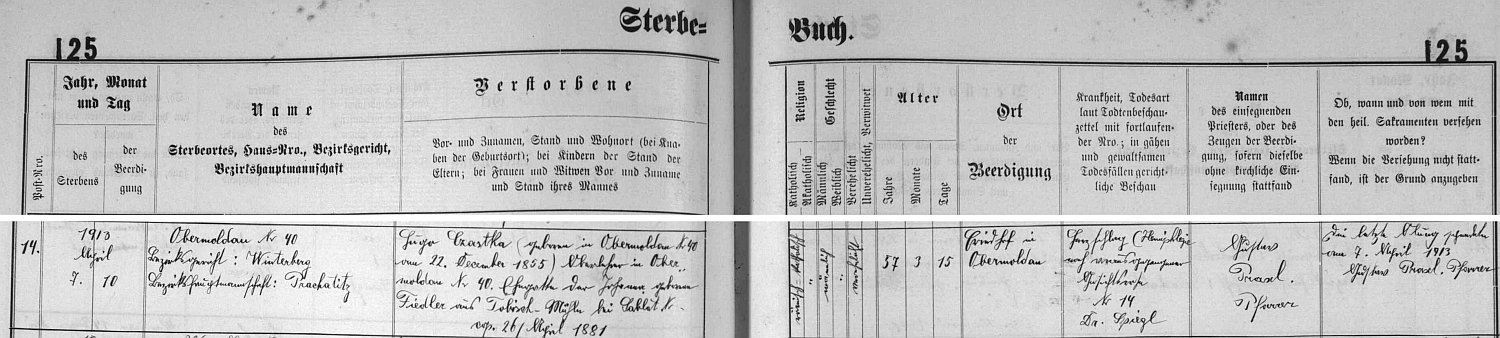 Sterbe=
Buch.
125
125
Post-Nro.
Jahr, Monat
und Tag
des
Sterbens
der
Beerdi-
gung
Name
des
Sterbeortes, Haus=Nro., Bezirksgericht,
Bezirkshauptmannschaft
Verstorbene
Vor- und Zunamen, Stand und Wohnort (bei Kna-
ben der Geburtsort); bei Kindern der Stand der
Eltern; bei Frauen und Witwen Vor und Zuname
und Stand ihres Mannes
Religion
Katholisch
Akatholisch
Geschlecht
Männlich
Weiblich
Verehelicht
Unverehelicht, Verwitwet
Alter
Jahre
Monate
Tage
Ort
der
Beerdigung
Krankheit, Todesart
laut Todtenbeschau-
zettel mit fortlaufen-
der Nro.; in gähen
und gewaltsamen
Todesfällen gericht
liche Beschau
Namen
des einsegnenden
Priesters, oder des
Zeugen der Beerdi-
gung, sofern dieselbe
ohne kirchliche Ein-
segnung stattfand
Ob, wann und von wem mit
den heil. Sakramenten versehen
worden?
Wenn die Versehung nicht statt-
fand, ist der Grund anzugeben
14.
1913
April
7. 10
Obermoldau Nr 40
Bezirksgericht: Winterberg
Bezirkshauptmannschaft: Prachatitz
Hugo Czastka (geboren in Obermoldau Nr 40
am 22. Dezember 1855) Oberlehrer in Ober-
moldau Nr. 40. Ehegatte der Johanna geborene
Fiedler aus Tobisch-Mühle bei
cop. 26/April 1881
katholisch
männlich
verehelicht
57 3 15
Friedhof in
Obermoldau
Herzschlag
nach vorausgegangener
Gesichtsrose
Nr 14
Dr. Spiegl
Gustav
Prasl.
Pfarrer
Die letzte Ölung spendete
am 7. April 1913
Gustav Prasl. Pfarrer